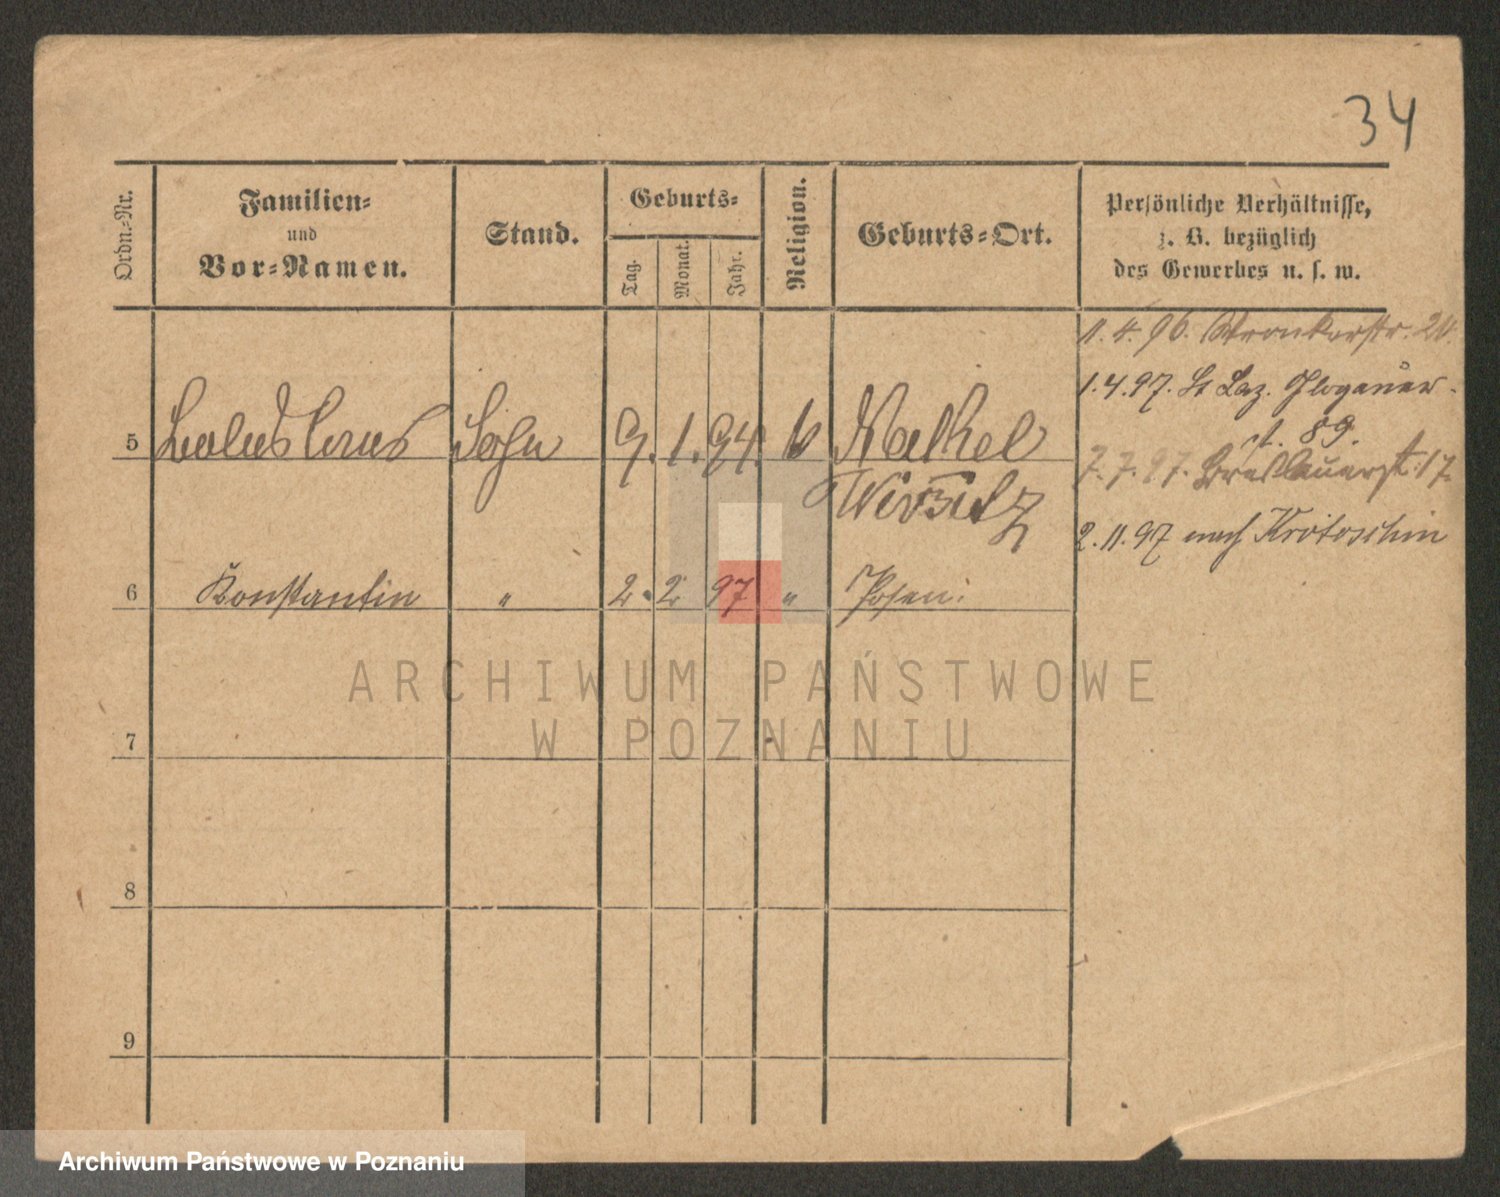 34
Ordn.-Nr.
Familien-
und
Vor-Namen.
Stand.
Geburts-
Tag.
Monat.
Jahr.
Religion.
Geburts-Ort.
Persönliche Verhältnisse,
z. B. bezüglich
des Gewerbes u. s. w.
11. 4. 96. Wronkerstr. 24.
1. 4. 97. St Laz. Glogauer-
st. 89.
5 Ladislaus Sohn 9. 1. 94. k Nakel
Wirsitz
7. 7. 97. Breslauerst. 17
2. 11. 97 nach Krotoschin
6 Konstantin " 2. 2 97 " Posen.
ARCHIWUM PAŃSTWOWE
W POZNANIU
7
8
9
Archiwum Państwowe w Poznaniu